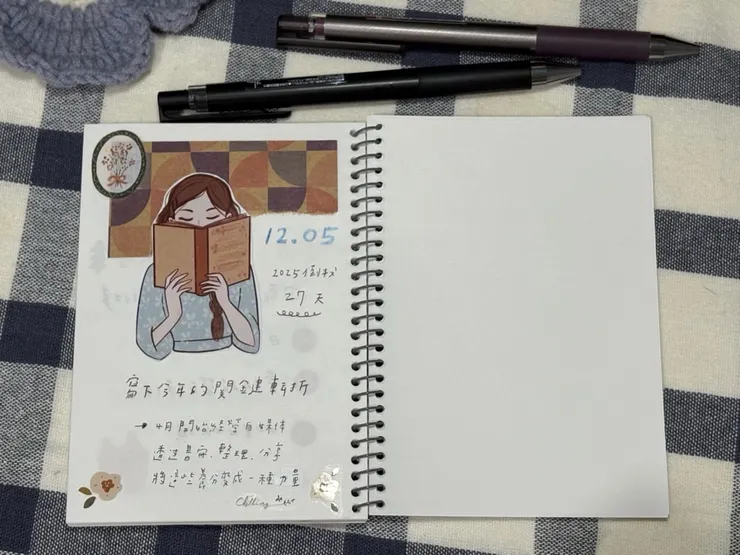 12.05
2025倒計
27天
寫下今年的關鍵轉折
→ 4月開始經營自媒体
透過書寫、整理、分享
將這些養分變成一種力量
Chilling